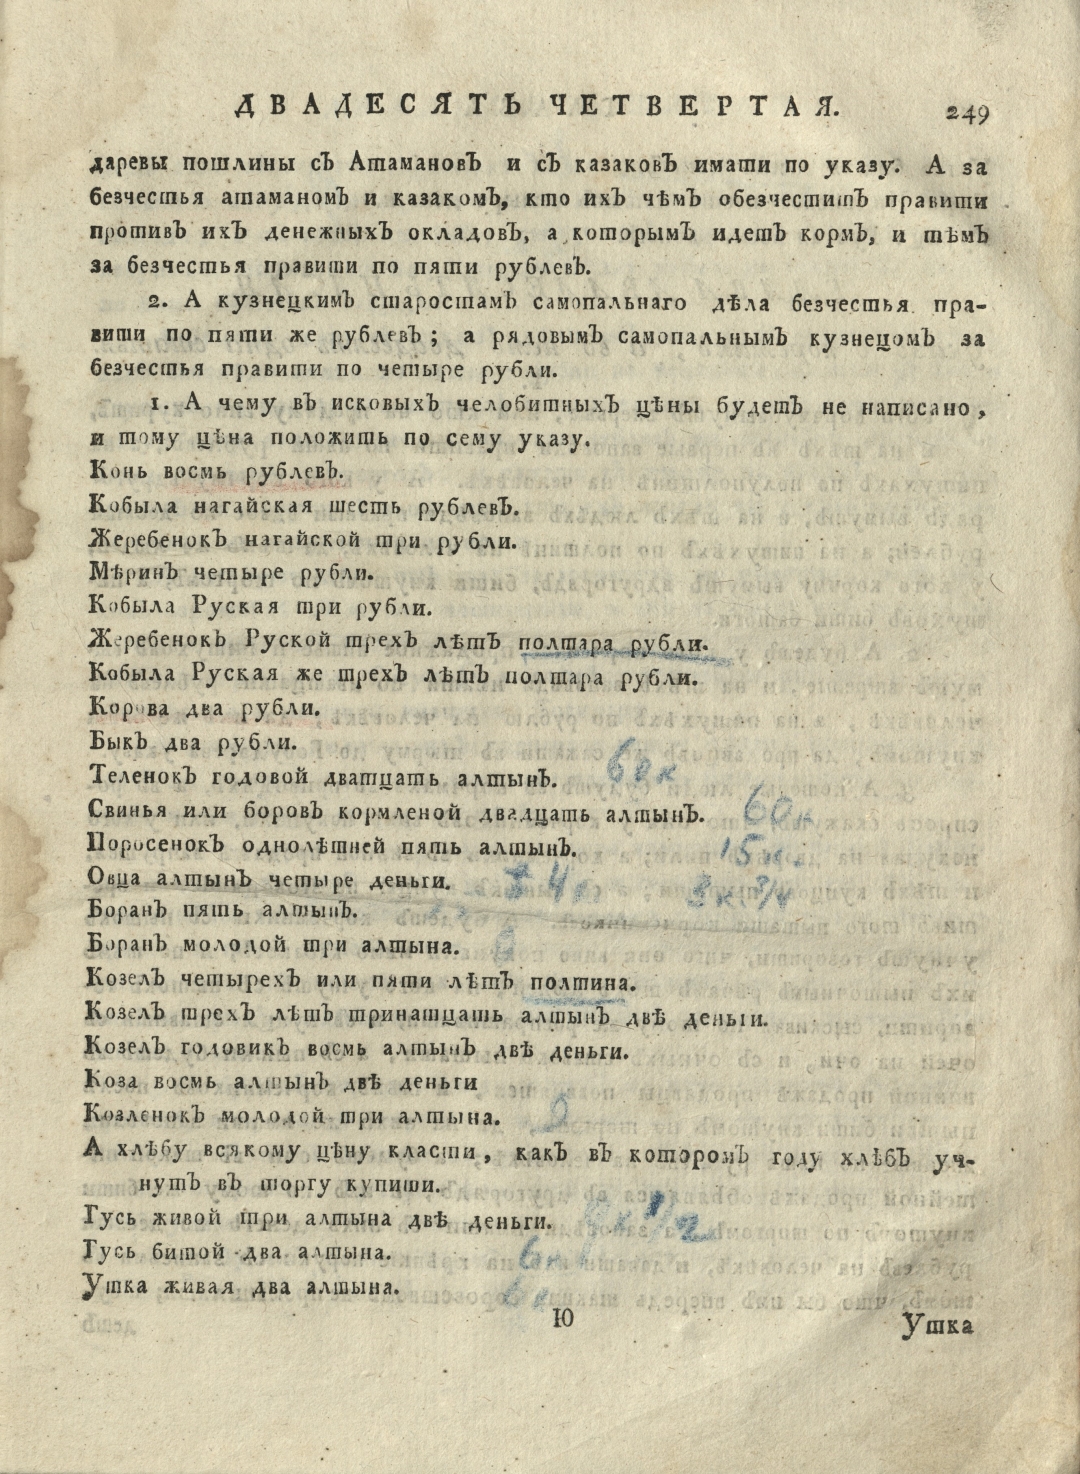 ДВАДЕСЯТЬ ЧЕТВЕРТАЯ. 249
даревы пошлины съ Атамановъ и съ казаковъ имати по указу. А за
безчестья атаманомъ и казакомъ, кто ихъ чѣмъ обезчеститъ правити
противъ ихъ денежныхъ окладовъ, а которымъ идетъ кормъ, и тѣмъ
за безчестья правити по пяти рублевъ.
2. А кузнецкимъ старостамъ самопальнаго дѣла безчестья пра-
вити по пяти же рублевъ; а рядовымъ самопальнымъ кузнецомъ за
безчестья правити по четыре рубли.
1. А чему въ исковыхъ челобитныхъ цѣны будетъ не написано,
и тому цѣна положить по сему указу.
Конь восмь рублевъ.
Кобыла нагайская шесть рублевъ.
Жеребенокъ нагайской три рубли.
Мѣринъ четыре рубли.
Кобыла Руская три рубли.
Жеребенокъ Руской трехъ лѣтъ полтара рубли.
Кобыла Руская же трехъ лѣтъ полтара рубли.
Корова два рубли.
Быкъ два рубли.
Теленокъ годовой дватцать алтынъ. 60 к
Свинья или боровъ кормленой двадцать алтынъ. 60 к
Поросенокъ однолѣтней пять алтынъ. 15 к.
Овца алтынъ четыре деньги.
Боранъ пять алтынъ.
Боранъ молодой три алтына.
Козелъ четырехъ или пяти лѣтъ полтина.
Козелъ трехъ лѣтъ тринатцать алтынъ двѣ деньги.
Козелъ годовикъ восмь алтынъ двѣ деньги.
Коза восмь алтынъ двѣ деньги
Козленокъ молодой три алтына. 9
А хлѣбу всякому цѣну класти, какъ въ которомъ году хлѣбъ уч-
нутъ въ торгу купиши.
Гусь живой три алтына двѣ деньги.
Гусь битой два алтына. 6 к
Утка живая два алтына. 6 к
Ю
Утка